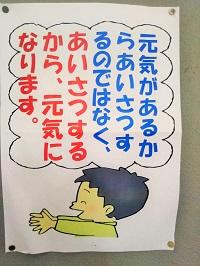 元気があるか
らあいさつす
るのではなく、
あいさつする
から、元気に
なります。